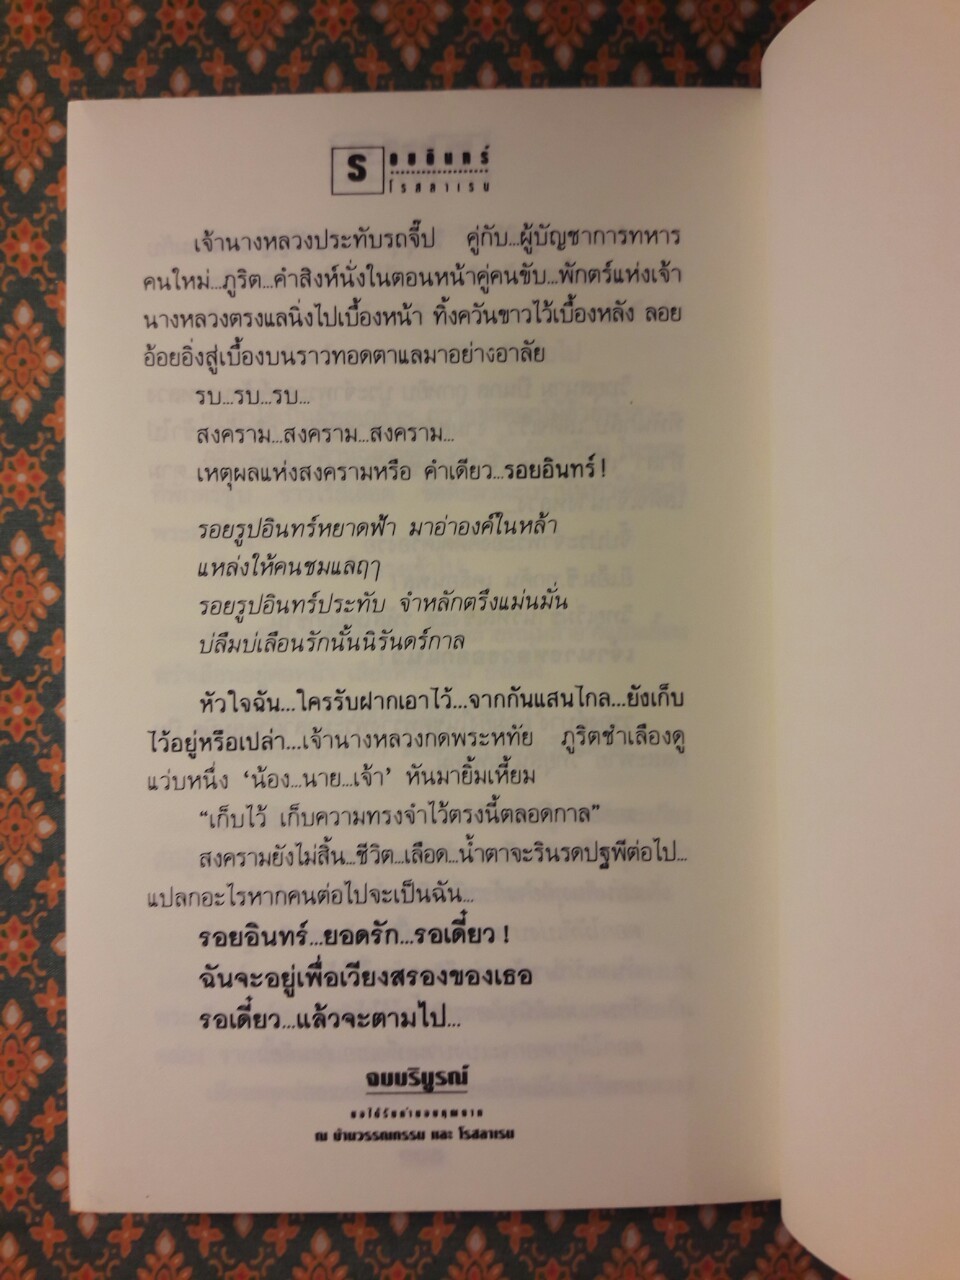 รอยอินทร์
โรสลาเรน
เจ้านางหลวงประทับรถจี๊ป คู่กับ...ผู้บัญชาการทหาร
คนใหม่...ภูริต...คำสิงห์นั่งในตอนหน้าคู่คนขับ...พักตร์แห่งเจ้า
นางหลวงตรงแลนิ่งไปเบื้องหน้า ทิ้งควันขาวไว้เบื้องหลัง ลอย
อ้อยอิ่งสู่เบื้องบนราวทอดตาแลมาอย่างอาลัย
รบ...รบ...รบ...
สงคราม...สงคราม...สงคราม...
เหตุผลแห่งสงครามหรือ คำเดียว...รอยอินทร์!
รอยรูปอินทร์หยาดฟ้า มาอ่าองค์ในหล้า
แหล่งให้คนชมแลฤๅ
รอยรูปอินทร์ประทับ จำหลักตรึงแม่นมั่น
บ่ลืมบ่เลือนรักนั้นนิรันดร์กาล
หัวใจฉัน...ใครรับฝากเอาไว้...จากกันแสนไกล...ยังเก็บ
ไว้อยู่หรือเปล่า...เจ้านางหลวงกดพระหทัย ภูริตชำเลืองดู
แว่บหนึ่ง ‘น้อง...นาย...เจ้า’ หันมายิ้มเหี้ยม
“เก็บไว้ เก็บความทรงจำไว้ตรงนี้ตลอดกาล”
สงครามยังไม่สิ้น...ชีวิต...เลือด...น้ำตาจะรินรดปฐพีต่อไป...
แปลกอะไรหากคนต่อไปจะเป็นฉัน...
รอยอินทร์...ยอดรัก...รอเดี๋ยว!
ฉันจะอยู่เพื่อเวียงสรองของเธอ
รอเดี๋ยว...แล้วจะตามไป...
จบบริบูรณ์
ขอได้รับคำขอบคุณจาก
ณ บ้านวรรณกรรม และ โรสลาเรน